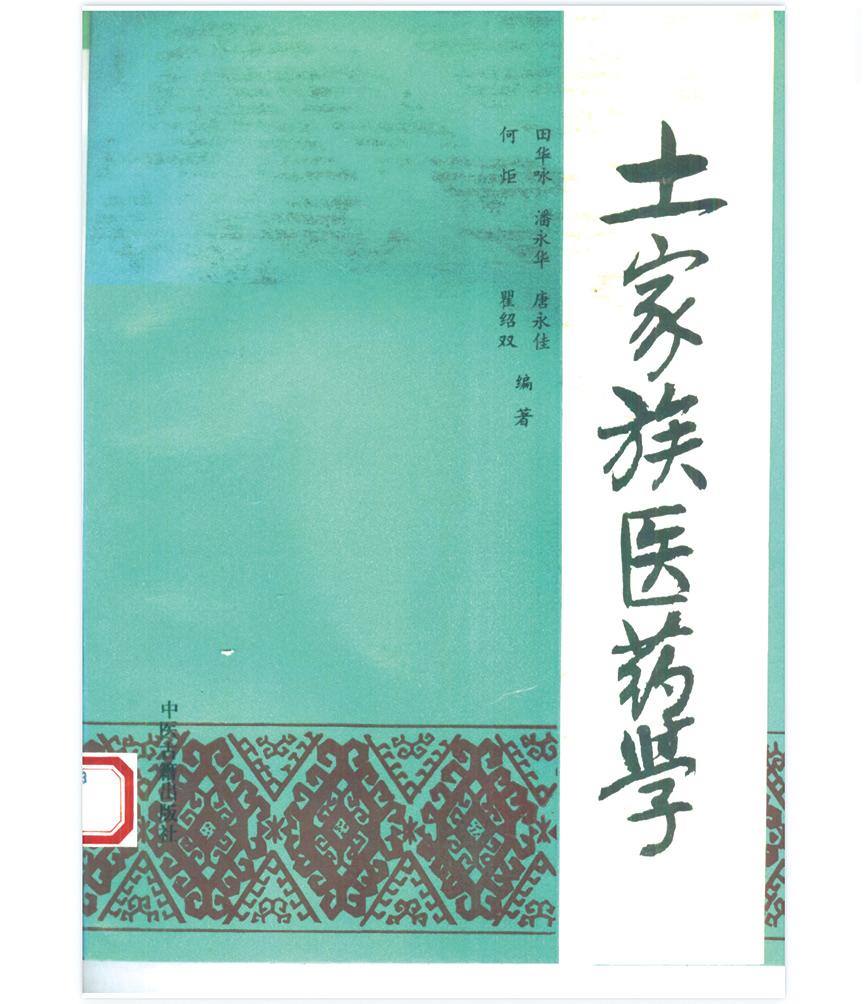 土家族医药学
田华咏 潘永华 唐永佳
何炬 瞿绍双
编著
中医古籍出版社